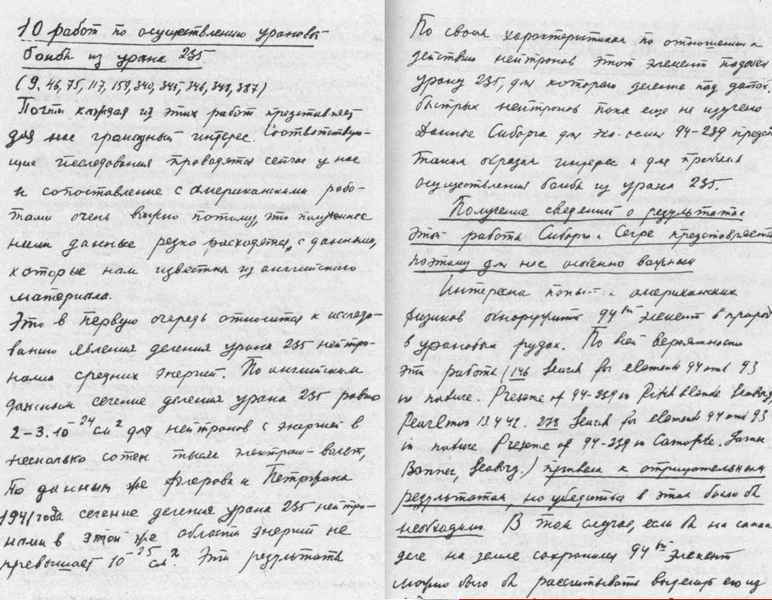 10 работ по осуществлению урановой
бомбы из урана 235
(9, 46, 75, 117, 159, 340, 345, 346, 348, 387)
Почти каждая из этих работ представляет
для нас громадный интерес. Соответствую-
щие исследования проводятся сейчас у нас
и сопоставление с американскими рабо-
тами очень важно потому, что полученные
нами данные резко расходятся с данными,
которые нам известны из английского
материала.
Это в первую очередь относится к исследо-
ванию явления деления урана 235 нейтро-
нами средних энергий. По английским
данным сечение деления урана 235 равно
2-3.10⁻²⁴ см² для нейтронов с энергией в
несколько сотен тысяч электрон-вольт,
По данным же Флерова и Петржака
1941 года сечение деления урана 235 нейтро-
нами в этой же области энергий не
превышает 10⁻²⁵ см². Эти результаты
По своим характеристикам по отношению к
действию нейтронов этот элемент подобен
урану 235, для которого деление под
быстрых нейтронов пока еще не изучено
Данные Сиборга для эка-осмия 94-239
таким образом интерес и для проблемы
осуществления бомбы из урана 235.
Получение сведений о результатах
этой работы Сиборга и Сегре представляется
поэтому для нас особенно важным
Интересна американских
физиков обнаружить 94ый элемент в природе
в урановых рудах. По всей вероятности
эти работы (146 Search for elements 94 and 93
in nature. Presence of 94-239 in Pitchblende Seaborg
Pearlman 13 4 42. 273 Search for elements 94 and 93
in nature Presence of 94-239 in
Bonner, Seaborg.) привели к отрицательным
результатам, но убедиться в этом было бы
необходимо. В том случае, если бы на самом
деле на земле сохранился 94ый элемент
можно было бы рассчитывать выделить его из